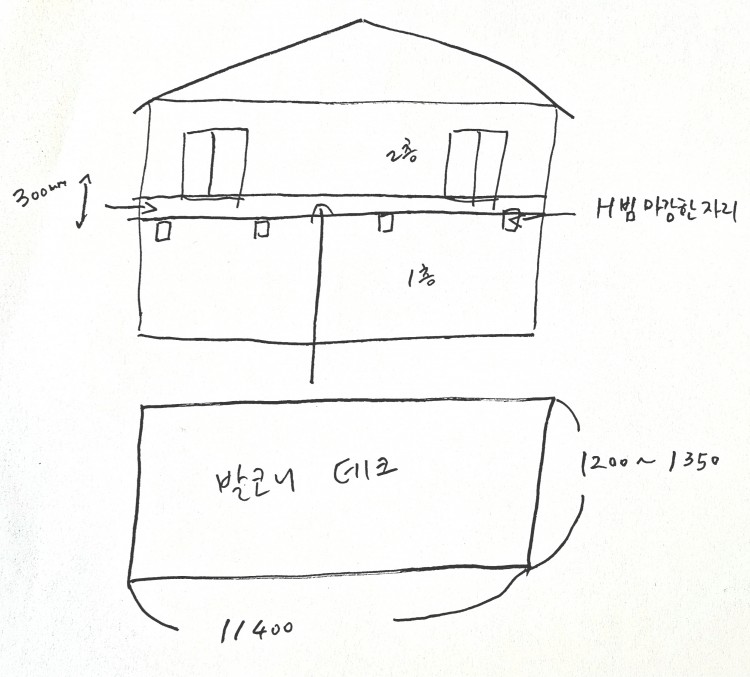 2층
300mm
H빔 마감한자리
1층
발코니 데크
1200~1350
11400